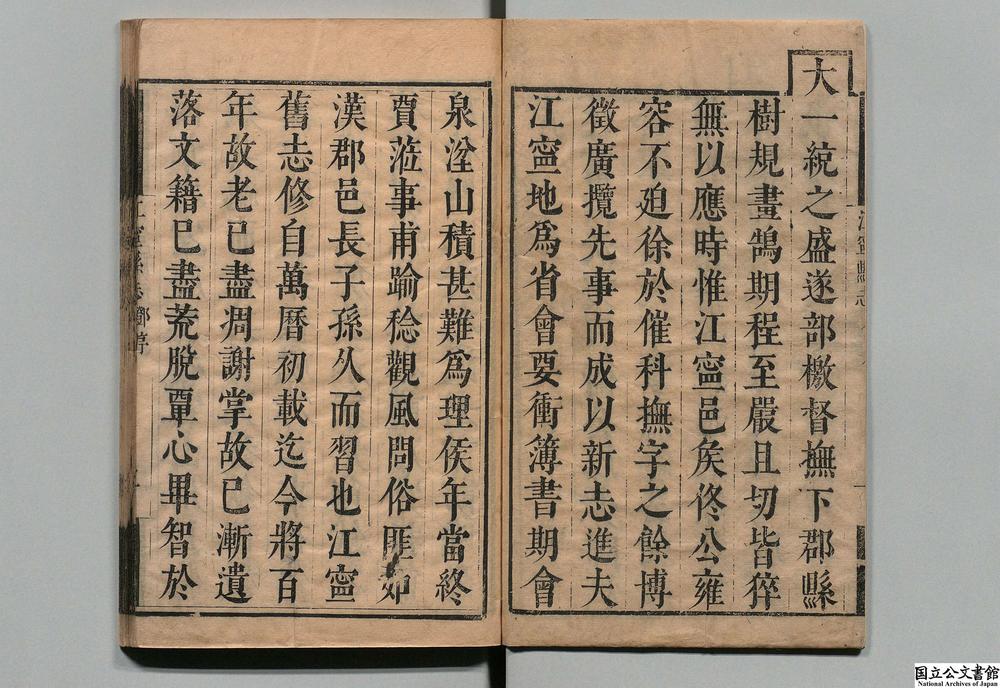 大一統之盛遂部檄督撫下郡縣
樹規畫鵠期程至嚴且切皆猝
無以應時惟江寧邑矦佟公雍
容不廹徐於催科撫字之餘博
徵廣攬先事而成以新志進夫
江寧地爲省會要衝簿書期會
泉湓山積甚難爲理侯年當終
賈蒞事甫踰稔觀風問俗匪茆
漢郡邑長子孫久而習也江寧
舊志修自萬曆初載迄今將百
年故老已盡凋謝掌故已漸遺
落文籍已盡荒脫覃心畢智於
江寧縣志
江寧縣志
國立公文書館
National Archives of Japan